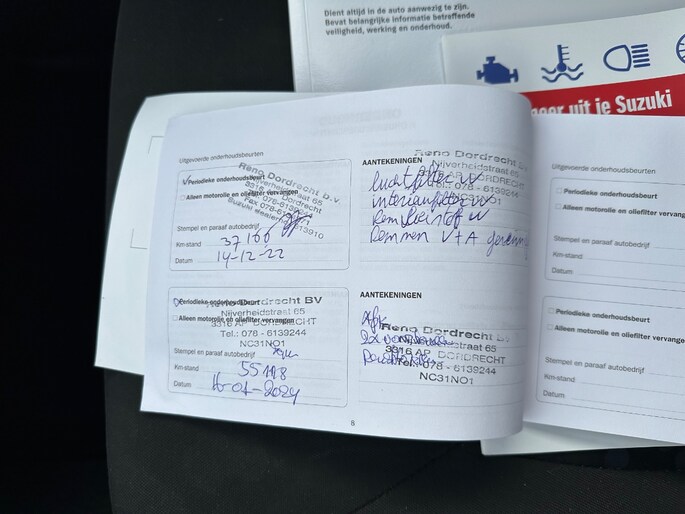 Dient altijd in de auto aanwezig te zijn.
Bevat belangrijke informatie betreffende
veiligheid, werking en onderhoud.
meer uit je Suzuki
Uitgevoerde onderhoudsbeurten
Periodieke onderhoudsbeurt
Alleen motorolie en oliefilter vervangen
Reno Dordrecht b.v.
Nijverheidstraat 65
3316 AP Dordrecht
Tel. 078-6139244
Fax 078-6513910
Suzuki dealer
Stempel en paraaf autobedrijf
Km-stand 37100
Datum 14-12-22
AANTEKENINGEN
Reno Dordrecht bv
Nijverheidstraat 65
3316 AP DORDRECHT
Tel.: 078 - 6139244
NC31NO1
luchtfilter W
interieurfilter W
Remvloeistof W
Remmen V+A
Periodieke onderhoudsbeurt
Alleen motorolie en oliefilter vervangen
Reno Dordrecht BV
Nijverheidstraat 65
3316 AP DORDRECHT
Tel.: 078 - 6139244
NC31NO1
Stempel en paraaf autobedrijf
Km-stand 55118
Datum 16-01-2024
AANTEKENINGEN
Reno Dordrecht bv
Nijverheidstraat 65
3316 AP DORDRECHT
Tel.: 078 - 6139244
NC31NO1
8
Uitgevoerde onderhoudsbeurten
Periodieke onderhoudsbeurt
Alleen motorolie en oliefilter vervangen
Stempel en paraaf autobedrijf
Km-stand
Datum
Periodieke onderhoudsbeurt
Alleen motorolie en oliefilter vervangen
Stempel en paraaf autobedrijf
Km-stand
Datum